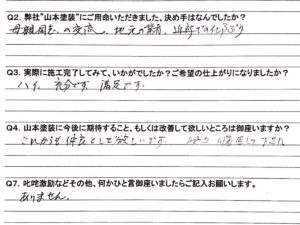 Q2. 弊社"山本塗装"にご用命いただきました、決め手はなんでしたか?
母親同志の交流。地元の業者、近所での仕事ぶり
Q3. 実際に施工完了してみて、いかがでしたか?ご希望の仕上がりになりましたか?
ハイ、充分です 満足です。
Q4. 山本塗装に今後に期待すること、もしくは改善して欲しいところは御座いますか?
これからも
Q7. 叱咤激励などその他、何かひと言御座いましたらご記入お願いします。
ありません。